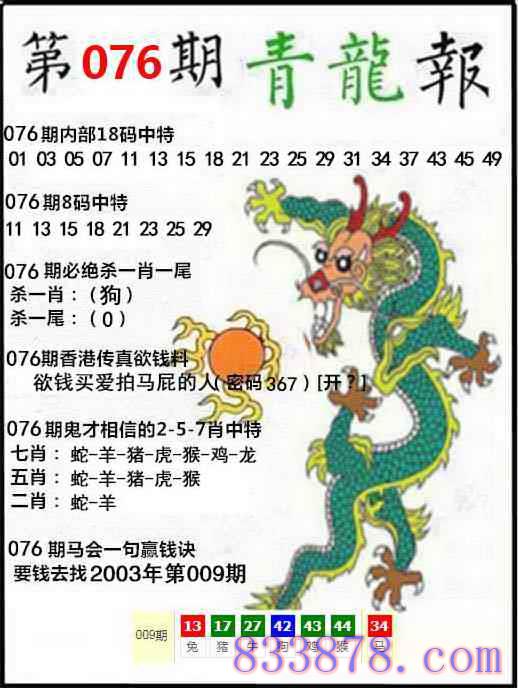 第076期青龍報
076期内部18码中特
01 03 05 07 11 13 15 18 21 23 25 29 31 34 37 43 45 49
076期8码中特
11 13 15 18 21 23 25 29
076期必绝杀一肖一尾
杀一肖：（狗）
杀一尾：（0）
076期香港传真欲钱料
欲钱买爱拍马屁的人(密码367)[开？]
076期鬼才相信的2-5-7肖中特
七肖：蛇-羊-猪-虎-猴-鸡-龙
五肖：蛇-羊-猪-虎-猴
二肖：蛇-羊
076期马会一句赢钱诀
要钱去找2003年第009期
009期 13 17 27 42 43 44 34
兔 猪 牛 狗 鸡 猴 马
833878.com